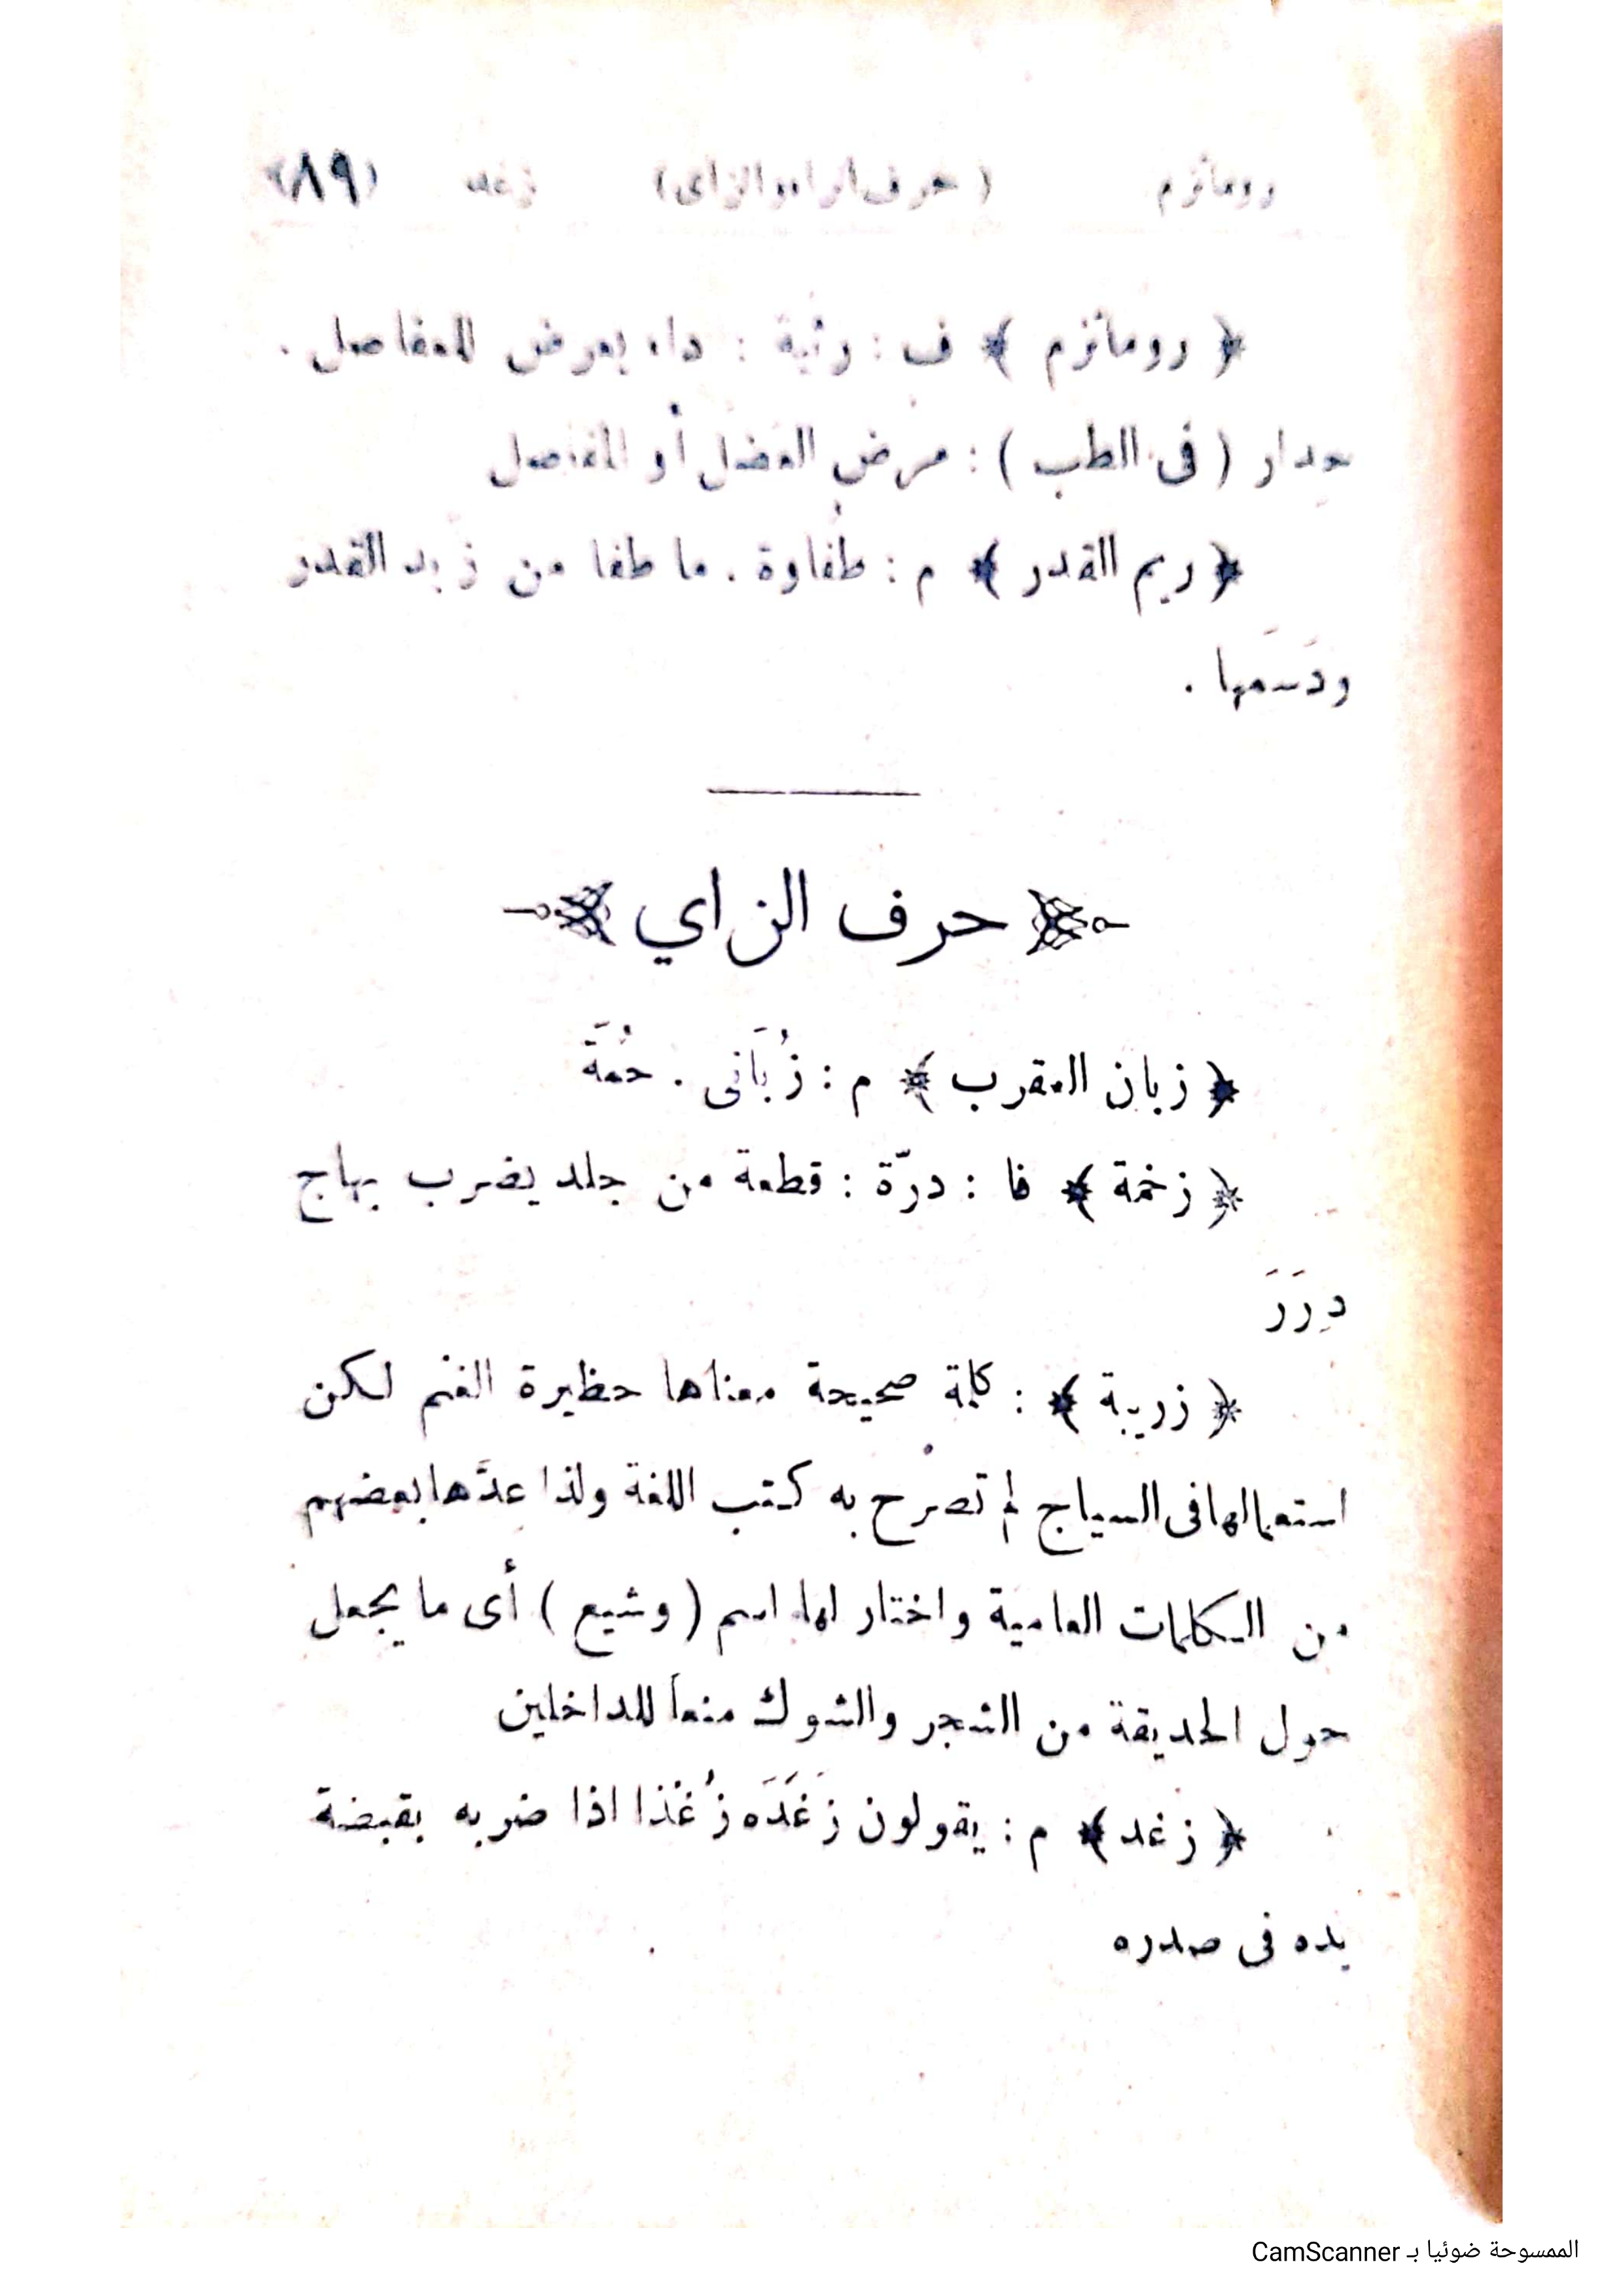 روماتزم ( حرف الراء والزاى ) زغد (٨٩)
﴿ روماتزم ﴾ ف : رثية : داء يعرض للمفاصل .
حدار ( فى الطب ) : مرض العضل أو المفاصل
﴿ ريم القدر ﴾ م : طفاوة . ما طفا من زبد القدر
ودَسَمها .
حرف الزاي
﴿ زبان العقرب ﴾ م : زُبَانى . حُمَة
﴿ زخمة ﴾ فا : درّة : قطعة من جلد يضرب بها ج
دِرَرَ
﴿ زريبة ﴾ : كلمة صحيحة معناها حظيرة الغنم لكن
استعمالها فى السياج لم تصرح به كتب اللغة ولذا عدَّها بعضهم
من الكلمات العامية واختار لها اسم ( وشيع ) أى ما يجعل
حول الحديقة من الشجر والشوك منعاً للداخلين
﴿ زغد ﴾ م : يقولون زَغَدَه زُغْدا اذا ضربه بقبضة
يده فى صدره
الممسوحة ضوئيا بـ CamScanner